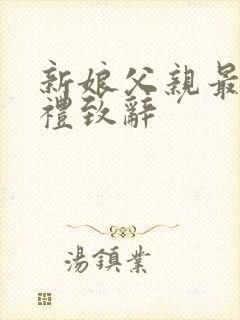 新娘父親最
禮致辭
湯鎮業